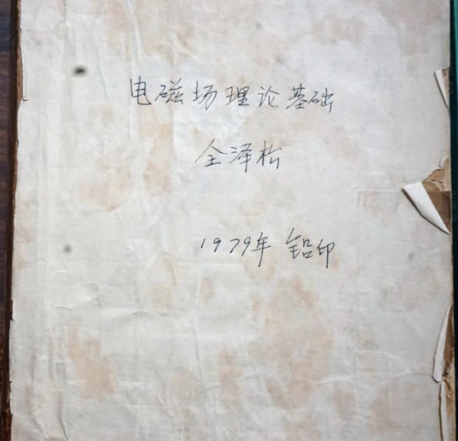 电磁场理论基础
全泽松
1979年 铅印